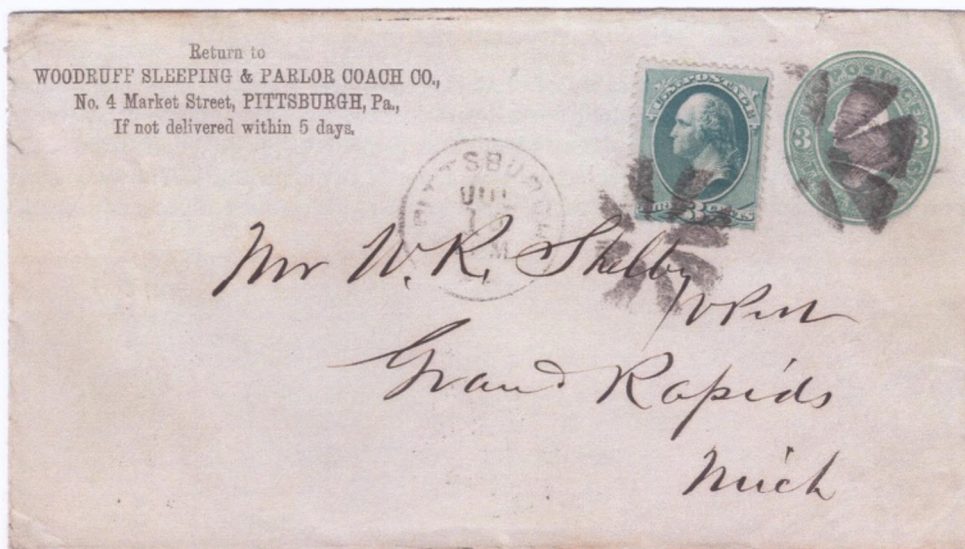 Return to
WOODRUFF SLEEPING & PARLOR COACH CO.,
No. 4 Market Street, PITTSBURGH, Pa.,
If not delivered within 5 days.
U.S. POSTAGE
3 CENTS
POSTAGE
3 3
PITTSBURGH
Mr W. R. Shelby
Grand Rapids
Mich